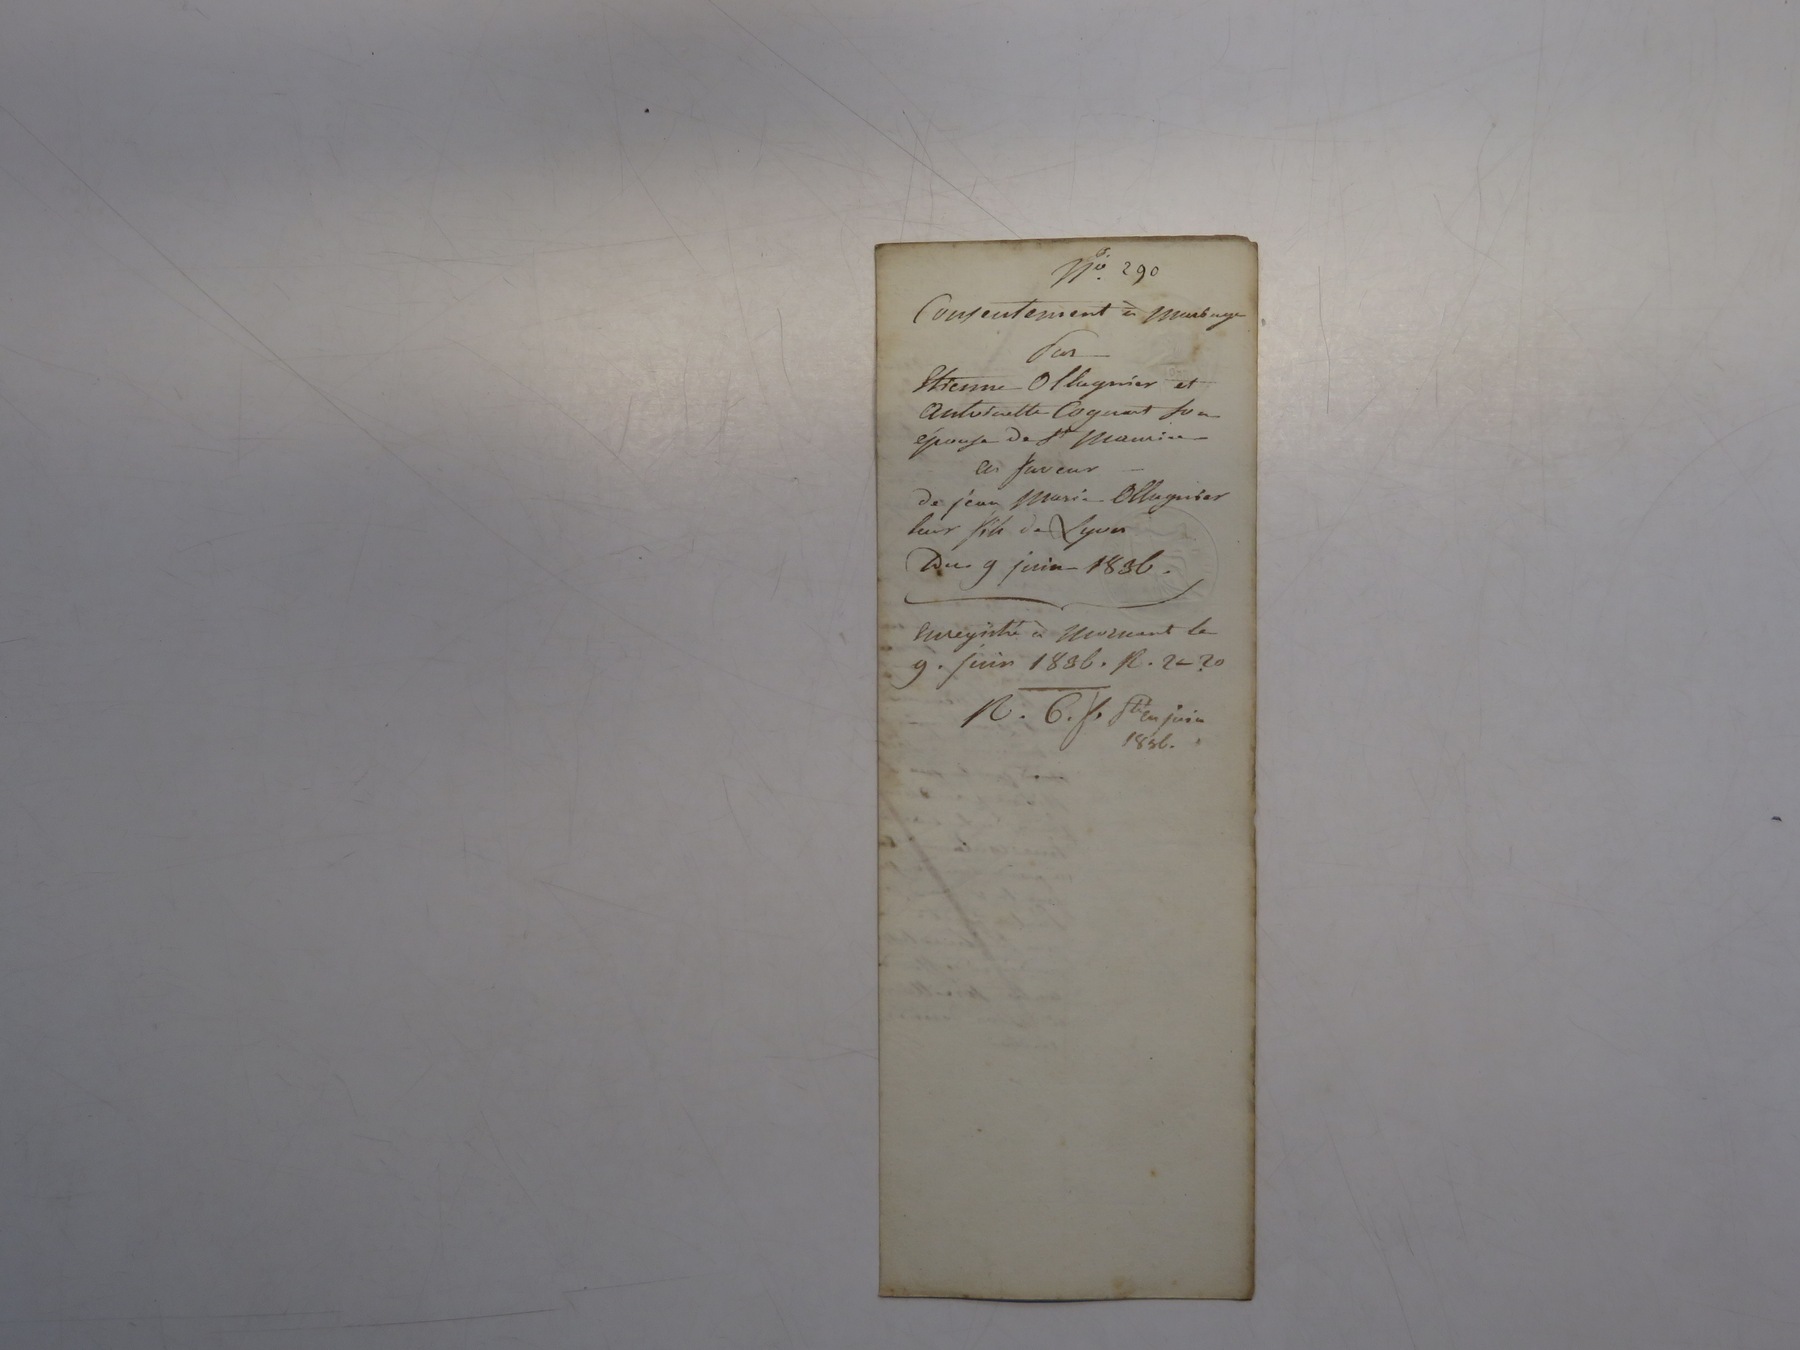 N° 290
Consentement à Mariage
Par
Etienne Ollagnier et
Antoinette Cognart son
épouse de St Maurice
en faveur
de jean Marie Ollagnier
leur fils de Lyon
Du 9 juin 1836.
Enregistré à Mornant le
9. juin 1836. R. 2 = 20
R. 6. f. en juin
1836.